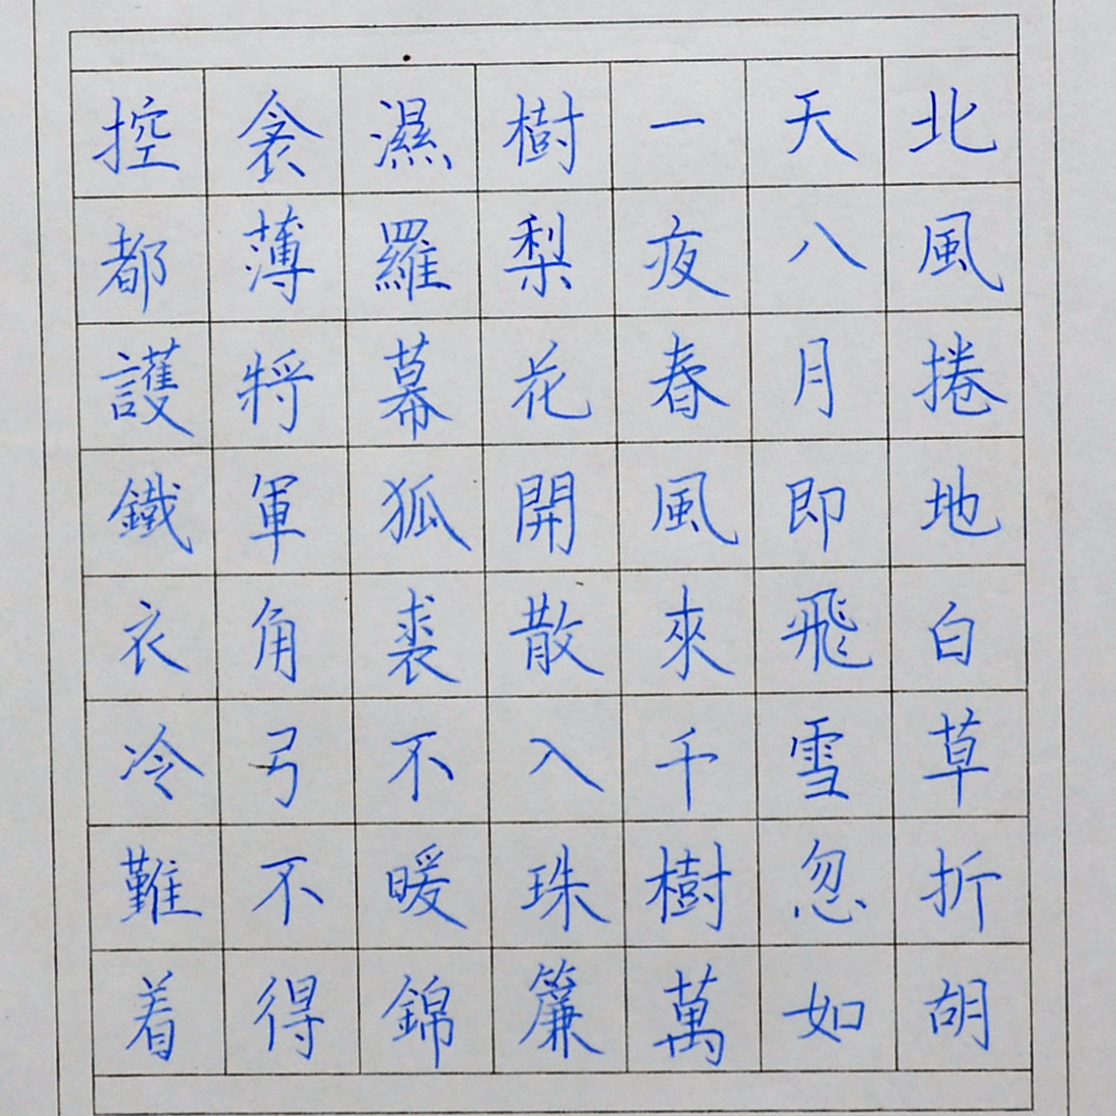 北風捲地白草折胡
天八月即飛雪忽如
一夜春風來千樹萬
樹梨花開散入珠簾
濕羅幕狐裘不暖錦
衾薄將軍角弓不得
控都護鐵衣冷難着